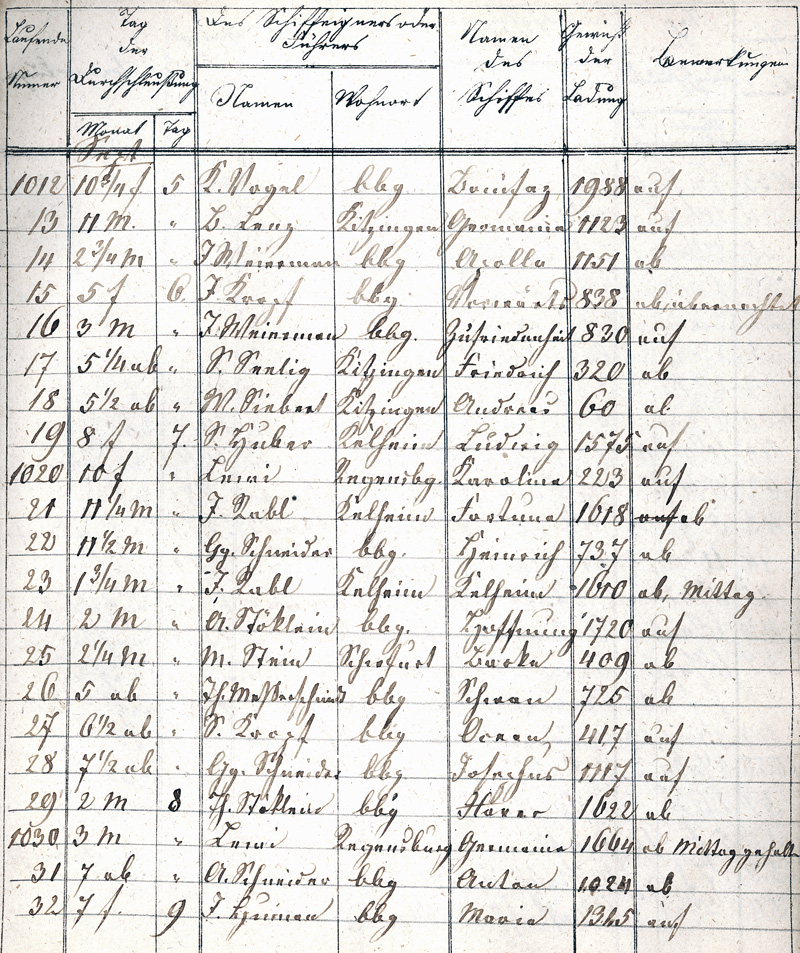 Laufende Numer | Tag der Durchschleußung | Des Schiffeigners oder Führers | Namen des Schiffes | Gewicht der Ladung | Bemerkungen
Monat | Tag | Namen | Wohnort
Sept
1012 10 3/4 f 5 K. Vogel bbg Bonifaz 1988 auf
13 11 M. " B. Lenz Kitzingen Germania 1123 auf
14 2 3/4 M " J Meierman bbg Apollo 1151 ab
15 5 f 6. J Kropf bbg Vorwärts 838 ab, übernachtet
16 3 M " J. Meierman bbg. Zufriedenheit 830 auf
17 5 1/4 ab " S. Seelig Kitzingen Friedrich 320 ab
18 5 1/2 ab " W. Siebert Kitzingen Andreas 60 ab
19 8 f 7. S. Huber Kelheim Ludwig 1575 auf
1020 10 f " Lewi Regensbg. Karolina 223 auf
21 11 1/4 M " J. Rabl Kelheim Fortuna 1618 auf ab
22 11 1/2 M " Gg. Schneider bbg. Heinrich 737 ab
23 1 3/4 M " J. Rabl Kelheim Kelheim 1600 ab, Mittag
24 2 M " A. Stöklein bbg. Hoffnung 1720 auf
25 2 1/4 M " M. Stein Schwfurt Barke 409 ab
26 5 ab " Jh. Messerschmidt bbg Schwan 725 ab
27 6 1/2 ab " S. Kropf bbg Ocean 417 auf
28 7 1/2 ab " Gg. Schneider bbg Josephus 1117 auf
29 2 M 8 Th. Stöklein bbg 1622 ab
1030 3 M " Lewi Regensburg Germania 1664 ab Mittag gehalt
31 7 ab " A. Schneider bbg Anton 1024 ab
32 7 f. 9 J. bbg Maria auf